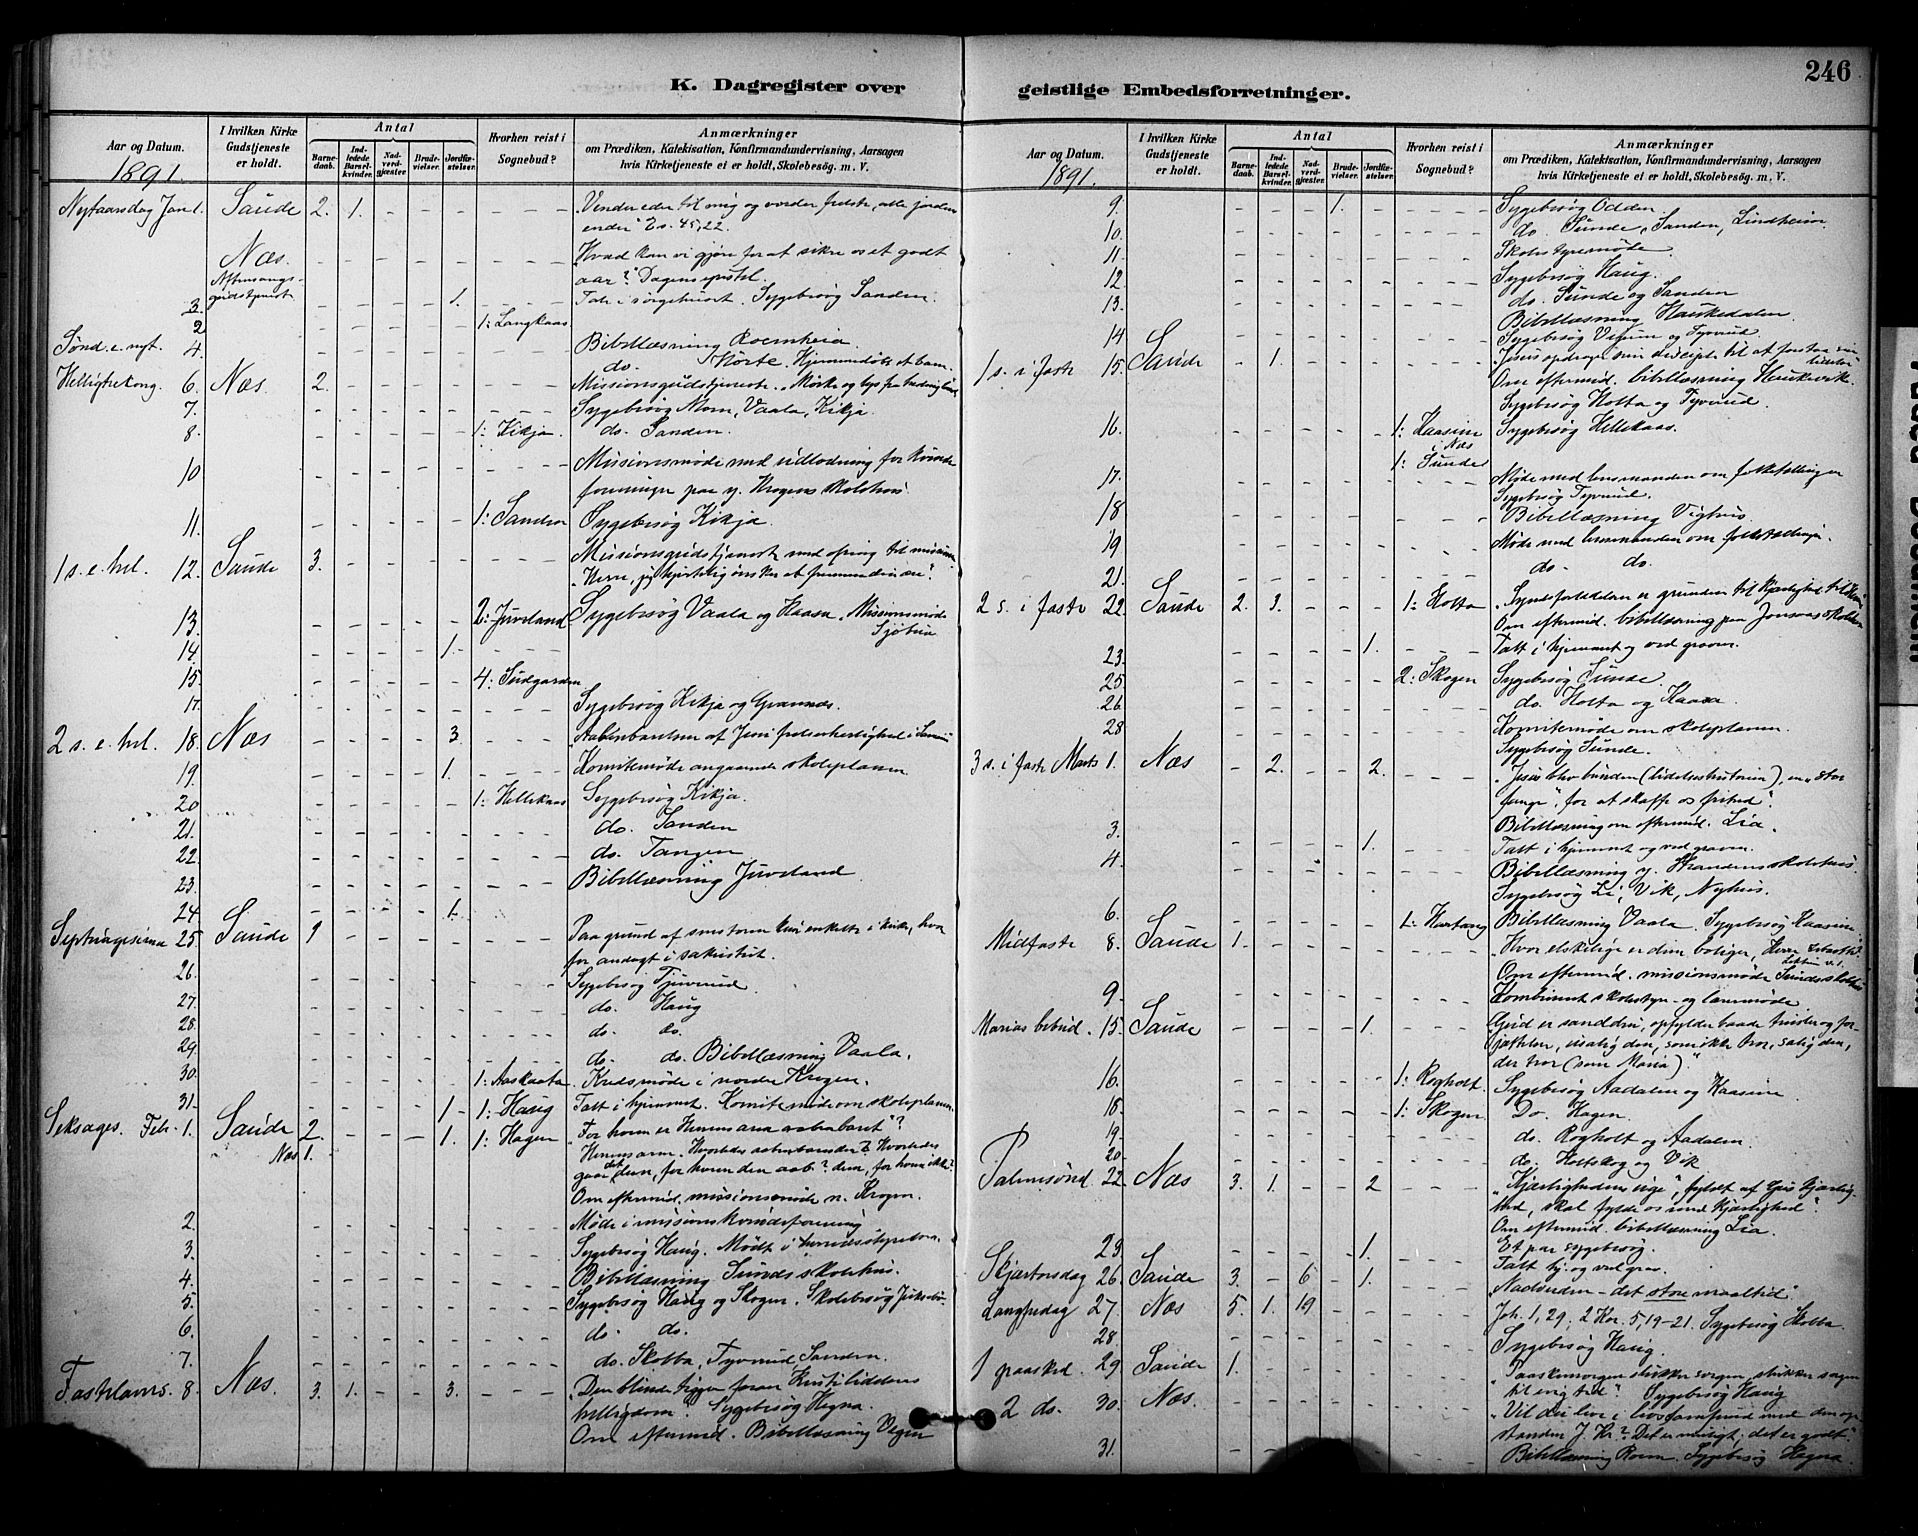 246
K. Dagregister over geistlige Embedsforretninger.
Aar og Datum.
1891.
I hvilken Kirke Gudstjeneste er holdt.
Antal
Barnedaab.
Indledede Barselkvinder.
Nadverdgjæster.
Brudevielser.
Jordfæstelser.
Hvorhen reist i Sognebud?
Anmærkninger
om Prædiken, Katekisation, Konfirmandundervisning, Aarsagen
hvis Kirketjeneste ei er holdt, Skolebesög. m. V.
Nytaarsdag Jan 1. Saude 2. 1. - - - - - - "Vender eder til mig og vorder frelste, alle jordens
ender" Es. 45,22.
Næs. "Hvad kan vi gjøre for at sikre os et godt
Aftensangs- aar?" Dagens epistel.
gudstjeneste
3. 1. Tale i sørgehuset. Sygebesøg Sanden.
2 1: Langkaas
Sønd. e. nyt. 4. Bibellæsning Roemheia
do. Hjemmedøbt et barn.
Helligtrekong. 6. Næs. 2. Missionsgudstjeneste.
7. Sygebesøg Mom, Vaala, Kikja.
8. 1: Kikja. do. Sanden.
10 Missionsmøde med udlodning for kvinde
foreninger paa y. Krogens skolehus.
11. 1: Sanden Sygebesøg Kikja.
1 s. e. hel. 12. Saude 3. Missionsgudstjeneste med ofring til missionen
"Herre, jeg hjertelig ønsker at fremme din ære".
13. 2: Juvland Sygebesøg Vaala og Haasa. Missionsmøde
14. 1.
15. 4: Sudgarden
17. Sygebesøg Kikja og Grannæs.
2 s. e. hel. 18. Næs 3.
19. 1. Komitemøde angaaende skoleplanen.
20 1: Hellekaas Sygebesøg Kikja.
21. do. Sanden
22. do. Tangen
23. Bibellæsning Juvland
24. 1.
Septuagesima 25. Saude 1 Paa grund af snestorm kun enkelte i kirke, hvor
for andagt i sakristiet.
26. Sygebesøg Tjuvrud
27. do. Haug
28. do. do.
29. do. do. Bibellæsning Vaala.
30. 1: Aaskaata Kredsmøde i nordre Krogen.
31. 1 1: Haug Talt i hjemmet. Komitemøde om skoleplanen.
Seksages. Feb. 1. Saude 2. 1. 1: Hagen "For hvem er Herrens arm aabenbaret"?
Næs 1. Herrens arm. Hvorledes aabenbaredes? Hvorledes
gaar det dem, for hvem den aab.? dem, for hvem ikke?
Om eftermid. missionsmøde n. Krogen.
2. Møde i missionskvindeforening
3. Sygebesøg Haug. Mødt i herredsstyret
4. Bibellæsning Sunds skolehus.
5. Sygebesøg Haug og Skogen. Skolebesøg
6. do. do.
7. do. Skotba, Tyvrud, Sanden.
Fastelavns. 8. Næs. 3. 1. 3. "Den blinde tigger foran Kristi lidelses
helligdom". Sygebesøg Hegna.
Om eftermid. Bibellæsning Vegen
Aar og Datum.
1891.
I hvilken Kirke Gudstjeneste er holdt.
Antal
Barnedaab.
Indledede Barselkvinder.
Nadverdgjæster.
Brudevielser.
Jordfæstelser.
Hvorhen reist i Sognebud?
Anmærkninger
om Prædiken, Katekisation, Konfirmandundervisning, Aarsagen
hvis Kirketjeneste ei er holdt, Skolebesög. m. V.
9. 1. Sygebesøg Odden.
10. do. Sunde, Sanden, Lindheim
11. Skolestyremøde
12 Sygebesøg Haug.
13. do. Sunde og Sanden
Bibellæsning Haukedalen
14 Sygebesøg Vigum og Tyvrud.
1 s. i faste 15. Saude 1.
Om eftermid. bibellæsning Haukvik.
Sygebesøg Holta og Tyvrud.
16. 1: Kaasine i Næs Sygebesøg Hellekaas.
1: Sunde
17. Møde med lensmanden om folketællingen
Sygebesøg Tyvrud.
18 Bibellæsning Vighus.
19 Møde med lensmanden om folketællingen.
21. do. do.
2 s. i faste 22. Saude 2. 3. 1: Holta "Syndsforladelsen er grunden til kjærlighed til
Om eftermid. bibellæsning paa Jonsaas skolehus
23. 1. Talt i hjemmet og ved graven.
25 2: Skogen Sygebesøg Sunde.
26. do. Holta og Kaasa.
28 Komitemøde om skoleplanen.
Sygebesøg Sunde.
3 s. i faste Marts 1. Næs 2. 2. "Jesus blev bunden (lidelseshistorien), en "stor
fange", for at skaffe os frihed".
Bibellæsning om eftermid. Lia.
3. 1. Talt i hjemmet og ved graven.
4. Bibellæsning y. Strandens skolehus.
Sygebesøg Li, Vik, Nyhus.
6. 1: Hartang Bibellæsning Vaala. Sygebesøg Kaasine.
Midfaste 8. Saude 1. "Hvor elskelige er dine boliger, Herre Zebaoth".
Om eftermid. missionsmøde Sunds skolehus
9. Kombineret skolestyre- og læremøde
Marias bebud. 15. Saude 1. "Gud er sanddru, opfylder baade trusler og for
jættelser, usalig den, som ikke tror, salig den,
der tror (som Maria)".
16. 1: Rogholt Sygebesøg Aadalen og Kaasine
18. 1: Skogen Do. Hagen
19. do. Rogholt og Aadalen.
20 do. Holtskog og Vik
Palmesønd. 22. Næs 3. 1. 2 "Kjærlighedens uge", fyldt af Guds kjærlig-
hed, skal fylde os med kjærlighed".
Om eftermid. bibellæsning Lia.
23. 1. Et par sygebesøg.
Talt hj. og ved grav.
Skjærtorsdag 26. Saude 3. - 6 - 1. Nadverden - det store maaltid".
Langfredag 27. Næs 5. 1. 19 Joh. 1,29; 2 Kor. 5,19-21. Sygebesøg Holta.
28. Sygebesøg Haug.
1 paasked. 29 Saude 1. "Paaskemorgen slukker sorgen, slukker sorgen
til evig tid". Sygebesøg Haug
2 do. 30. Næs. "Vil du leve i livssamfund med den op-
standne J. Kr.? Det er muligt; det er godt".
31. Bibellæsning Roem. Sygebesøg Hegna